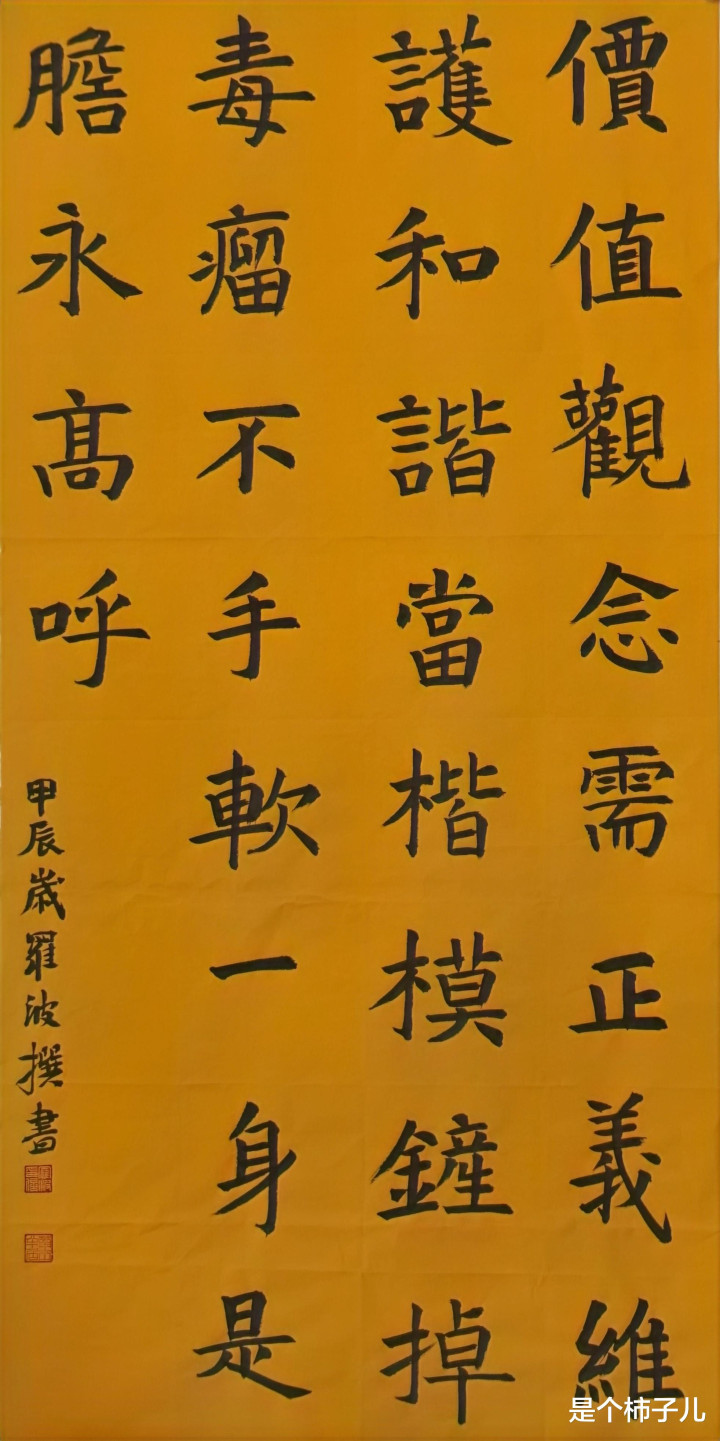 價值觀念需正義維
護和諧當楷模鏟掉
毒瘤不手軟一身是
膽永髙呼
甲辰歲羅波撰書
是个柿子儿